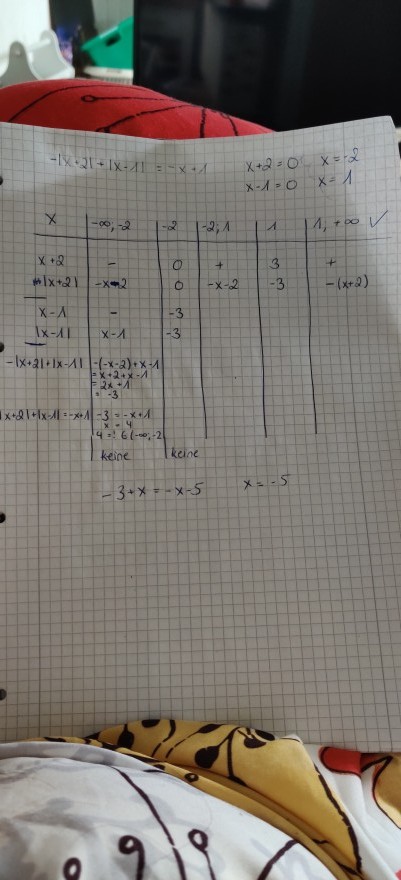 -|x+2|+|x-1| = -x+1 x+2=0 x=-2
x-1=0 x=1
x -∞;-2 -2 -2;1 1 1,+∞ ✓
x+2 - 0 + 3 +
-|x+2| 0 -x-2 -3 -(x+2)
x-1 - -3
|x-1| x-1 -3
-|x+2|+|x-1| -(-x-2)+x-1
= x+2+x-1
= 2x+1
= -3
|x+2|+|x-1|=-x+1 -3 = -x+1
x = 4
(-∞,-2
keine keine
-3+x = -x-5 x = -5